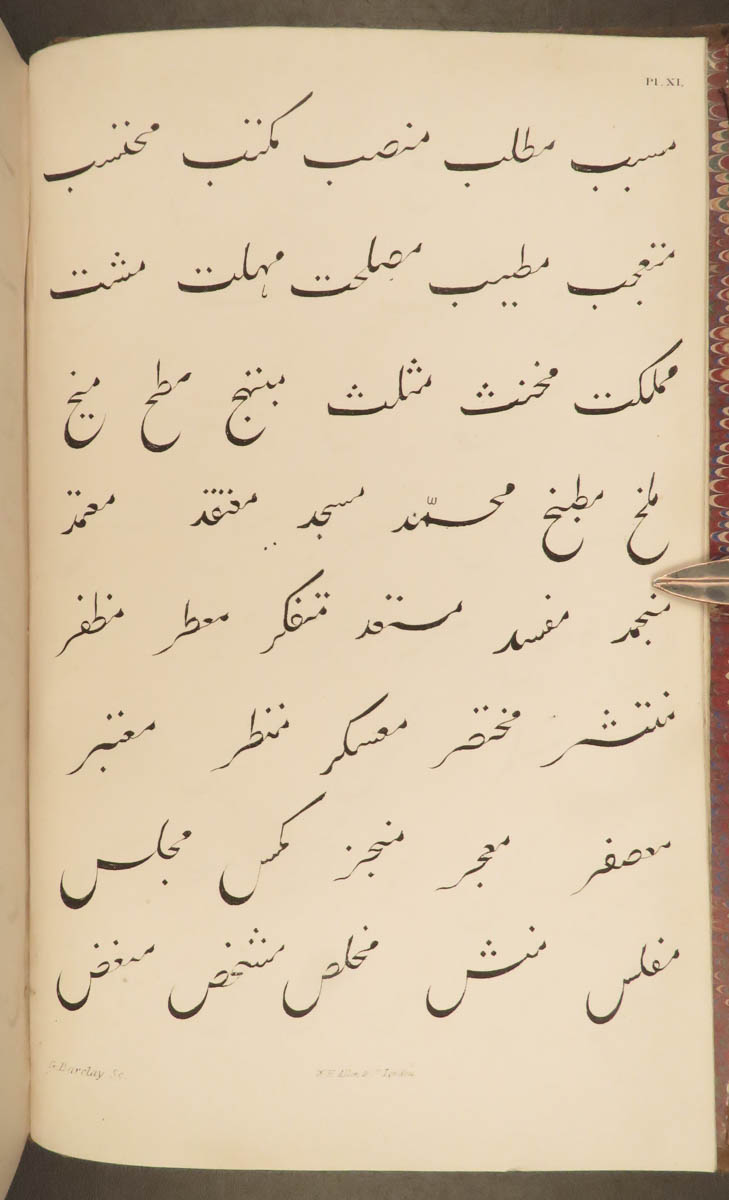 Pl. XI.
مسبب مطلب منصب مکتب محتسب
متعجب مطیب مصلحت مهلت مشت
مملکت مخنث مثلث مبتهج مطح
ملخ مطبخ محمد مسجد معتمد
منجمد مفسد متفکر معطر مظفر
منتشر مختصر معسکر منتظر معتبر
معصفر معجر مجلس
مفلس مخلص مشخص
G. Barclay Sc.
W. H. Allen & Co. London